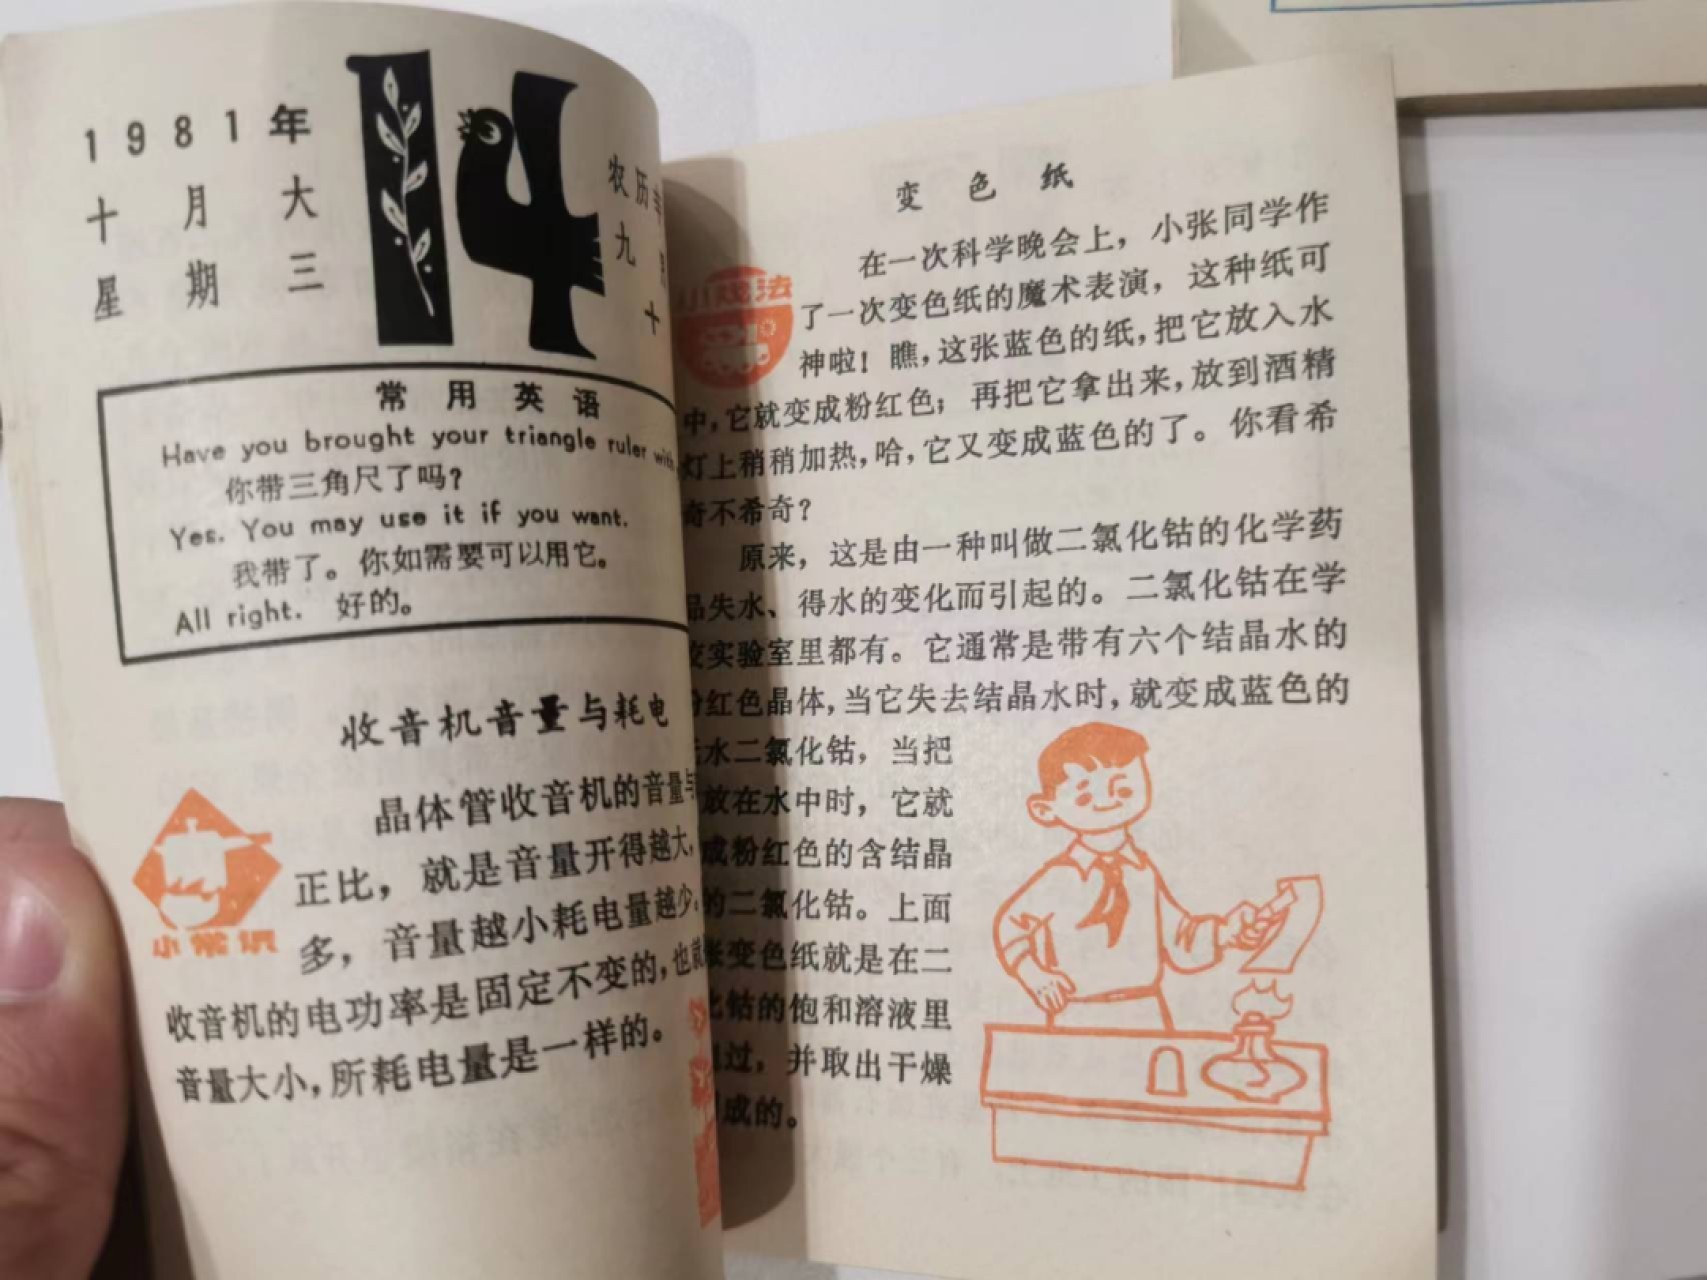 1981年
十月大
星期三
14
农历
九
十
常用英语
Have you brought your triangle ruler with
你带三角尺了吗?
Yes. You may use it if you want.
我带了。你如需要可以用它。
All right. 好的。
收音机音量与耗电
小常识
晶体管收音机的音量与
正比，就是音量开得越大，
多，音量越小耗电量越少。
收音机的电功率是固定不变的，也就
音量大小，所耗电量是一样的。
变色纸
小戏法
在一次科学晚会上，小张同学作
了一次变色纸的魔术表演，这种纸可
神啦！瞧，这张蓝色的纸，把它放入水
中，它就变成粉红色；再把它拿出来，放到酒精
灯上稍稍加热，哈，它又变成蓝色的了。你看希
奇不希奇？
原来，这是由一种叫做二氯化钴的化学药
品失水、得水的变化而引起的。二氯化钴在学
实验室里都有。它通常是带有六个结晶水的
红色晶体，当它失去结晶水时，就变成蓝色的
水二氯化钴，当把
放在水中时，它就
成粉红色的含结晶
的二氯化钴。上面
张变色纸就是在二
钴的饱和溶液里
过，并取出干燥
成的。